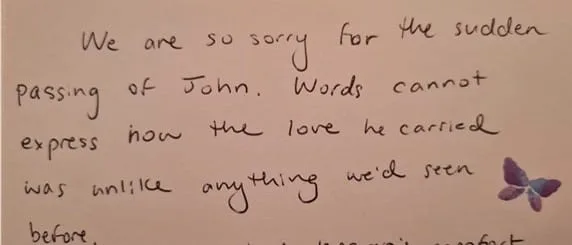 We are so sorry for the sudden
passing of John. Words cannot
express how the love he carried
was unlike anything we'd seen
before.